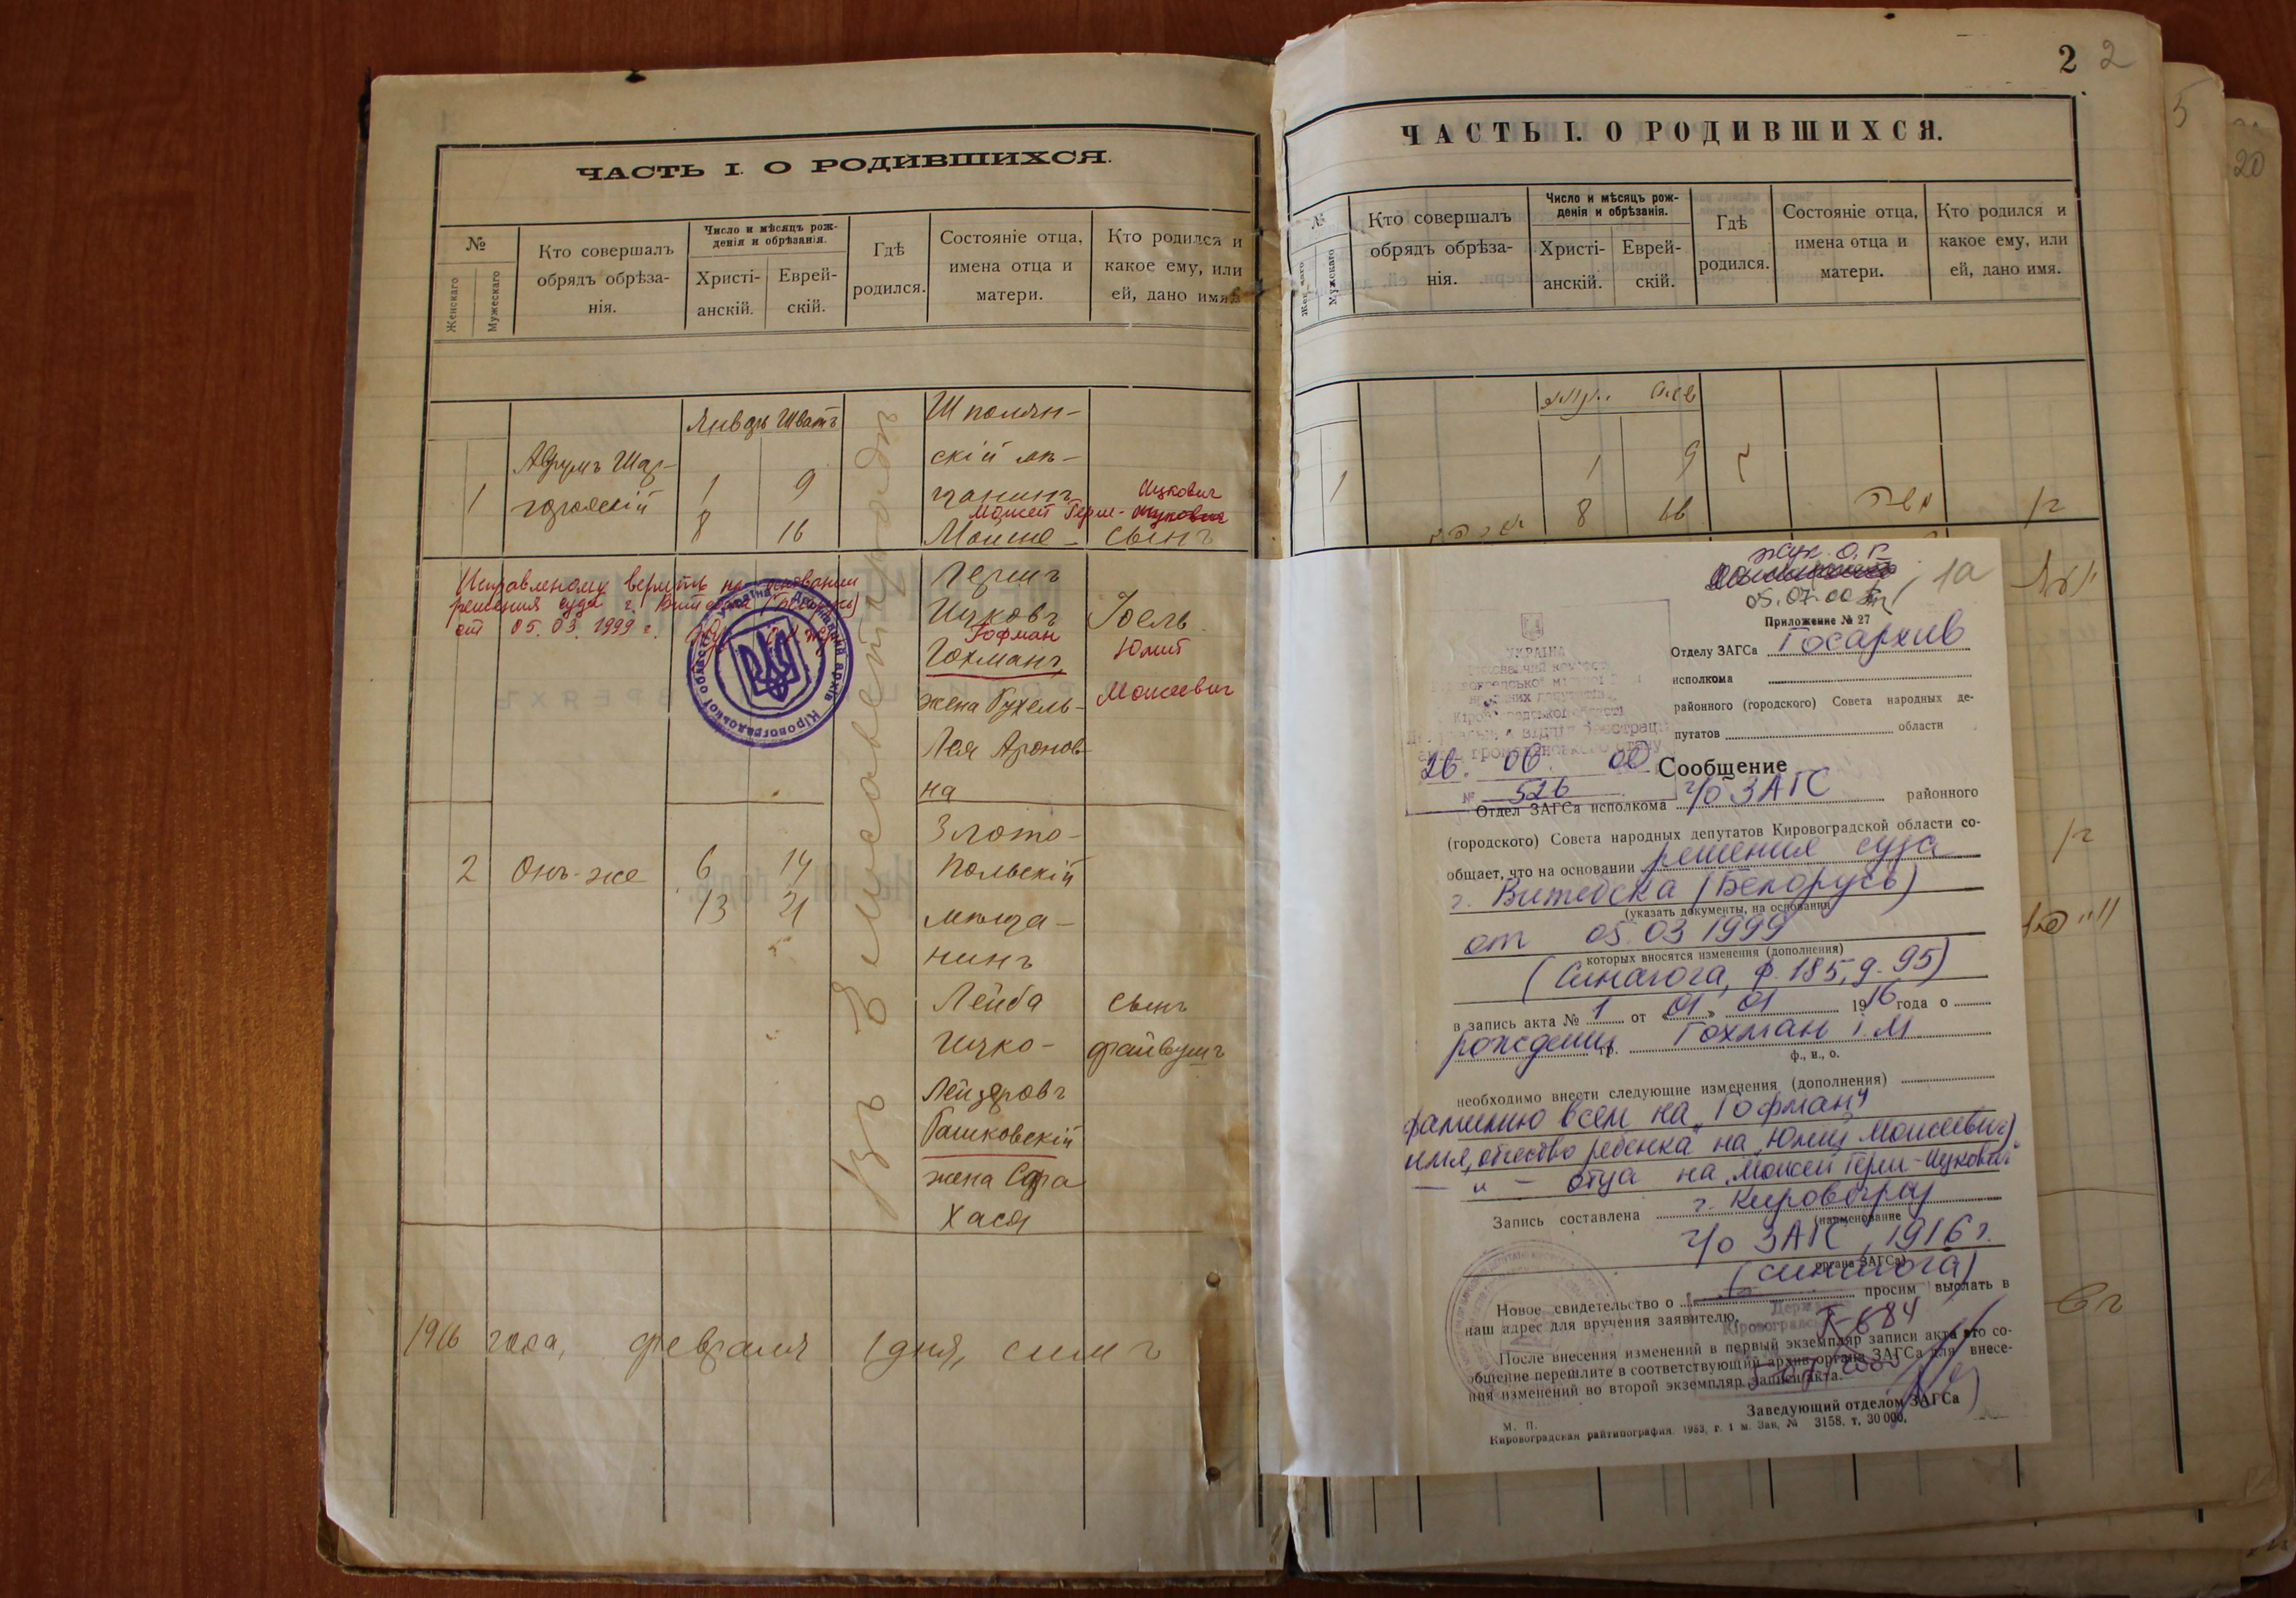 ЧАСТЬ I. О РОДИВШИХСЯ.
№
Женскаго
Мужескаго
Кто совершалъ
обрядъ обрѣза-
нія.
Число и мѣсяцъ рож-
денія и обрѣзанія.
Христі-
анскій.
Еврей-
скій.
Гдѣ
родился.
Состояніе отца,
имена отца и
матери.
Кто родился и
какое ему, или
ей, дано имя.
Январь Шватъ
1
Аврумъ Шар-
городскій
1 9
8 16
Въ Елисаветградѣ
Шполян-
скій мѣ-
щанинъ
Ицкович
Моисей Герш-
Моише - сынъ
Гершъ
Ицковъ Іоель
Гофман
Гохманъ Юлий
жена Рухель- Моисеевич
Лея Аронов-
на
Исправленому верить на основании
решения суда г. Витебска (Беларусь)
от 05.03.1999 г.
Україна Державний архів Кіровоградської області
2 Онъ-же 6 14
13 21
Злото-
польскій
мѣща-
нинъ
Лейба сынъ
Ицко- Файвушъ
Лейзеровъ
Рашковскій
жена Сура
Хася
1916 года, февраля 1 дня, симъ
2 2
5
20
ЧАСТЬ I. О РОДИВШИХСЯ.
№
Женскаго
Мужскаго
Кто совершалъ
обрядъ обрѣза-
нія.
Число и мѣсяцъ рож-
денія и обрѣзанія.
Христі-
анскій.
Еврей-
скій.
Гдѣ
родился.
Состояніе отца,
имена отца и
матери.
Кто родился и
какое ему, или
ей, дано имя.
1 1 9
8 16
Жук О.Г.
05.07.00
1а
Приложение № 27
УКРАЇНА
Отделу ЗАГСа Госархив
исполкома
районного (городского) Совета народных де-
путатов области
26. 06. 00
№ 526
Сообщение
Отдел ЗАГСа исполкома г/о ЗАГС районного
(городского) Совета народных депутатов Кировоградской области со-
общает, что на основании решения суда
г. Витебска (Белорусь)
(указать документы, на основании
от 05.03 1999
которых вносятся изменения (дополнения)
(Синагога, ф. 185, д. 95)
в запись акта № 1 от «01» 01 1916 года о
рождении гр. Гохман І.М
ф., и., о.
необходимо внести следующие изменения (дополнения)
фамилию всем на „Гофман"
имя, отчество ребенка на „Юлий Моисеевич"
— " — отца на „Моисей Герш-Ицкович"
Запись составлена г. Кировоград
(наименование
г/о ЗАГС, 1916 г.
органа ЗАГСа)
(синагога)
Новое свидетельство о просим выслать в
наш адрес для вручения заявителю.
После внесения изменений в первый экземпляр записи акта это со-
общение перешлите в соответствующий архив органа ЗАГСа для внесе-
ния изменений во второй экземпляр записи акта.
Заведующий отделом ЗАГСа
М. П.
Кировоградская райтипография. 1983, г. 1 м. Зак. № 3158, т. 30 000.